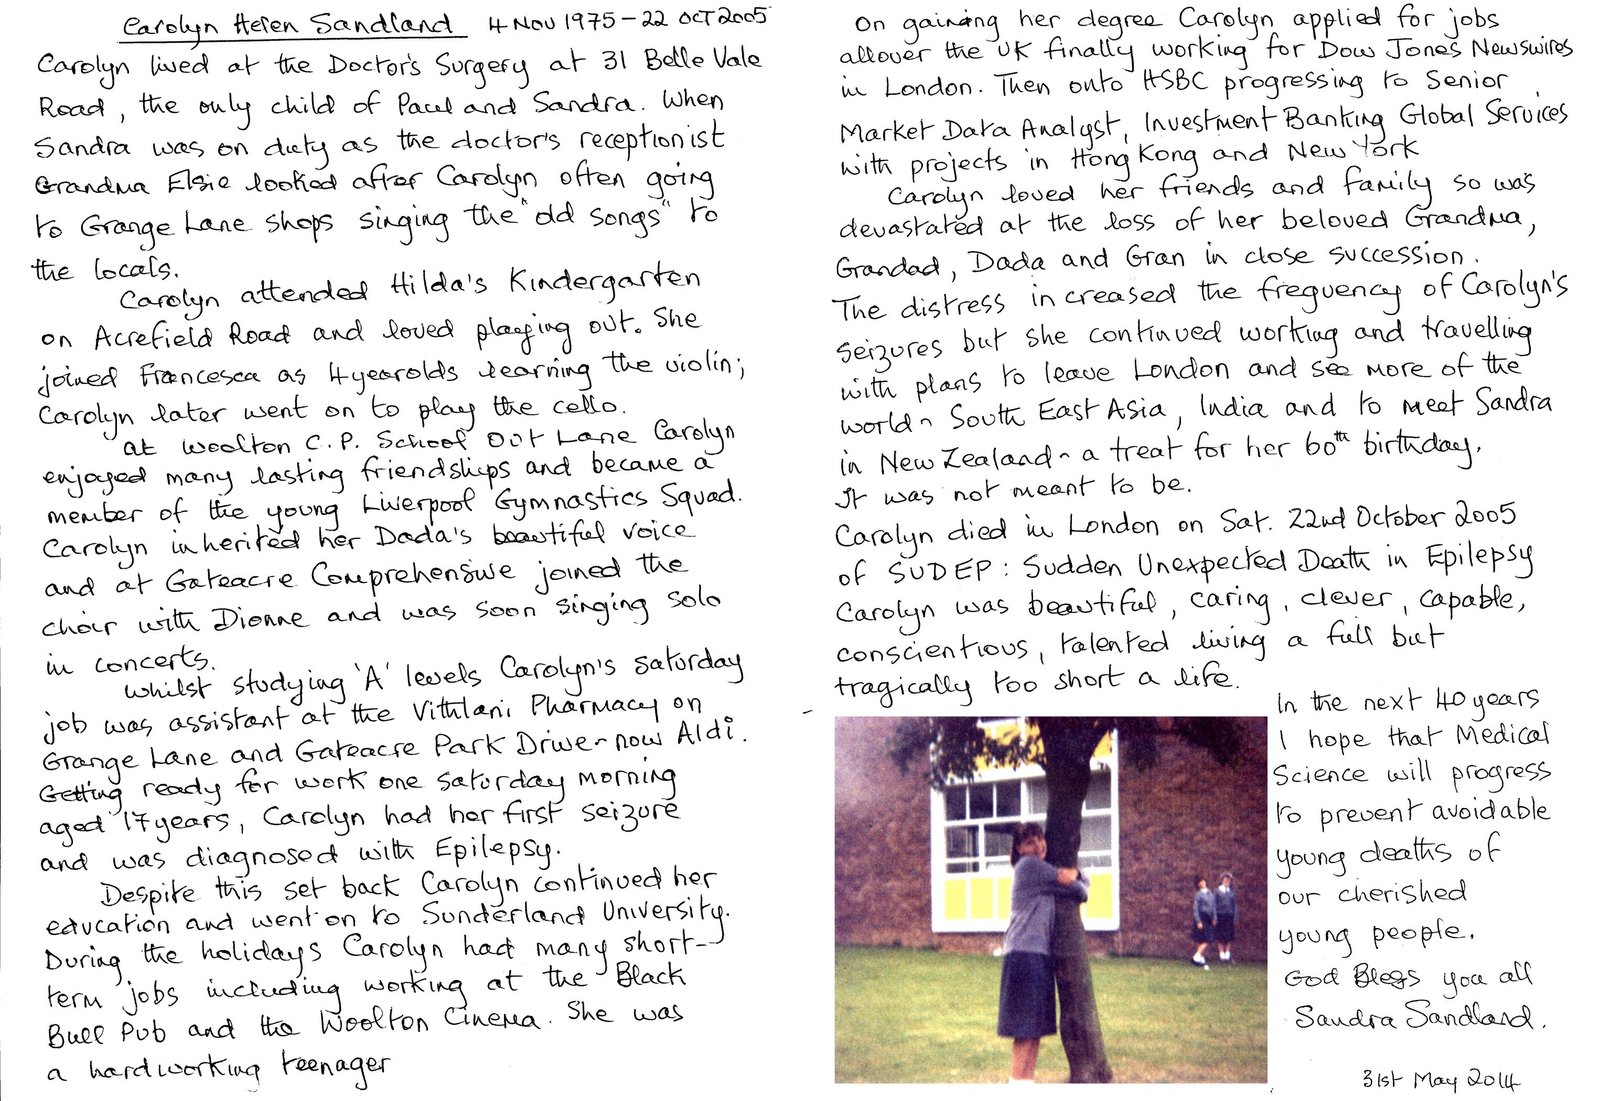 Carolyn Helen Sandland 4 Nov 1975 – 22 Oct 2005
Carolyn lived at the Doctor's Surgery at 31 Belle Vale
Road, the only child of Paul and Sandra. When
Sandra was on duty as the doctor's receptionist
Grandma Elsie looked after Carolyn often going
to Grange Lane shops singing the "old songs" to
the locals.
Carolyn attended Hilda's Kindergarten
on Acrefield Road and loved playing out. She
joined Francesca as 4 yearolds learning the violin;
Carolyn later went on to play the cello.
at Woolton C.P. School Out Lane Carolyn
enjoyed many lasting friendships and became a
member of the young Liverpool Gymnastics Squad.
Carolyn inherited her Dada's beautiful voice
and at Gateacre Comprehensive joined the
choir with Dionne and was soon singing solo
in concerts.
Whilst studying 'A' levels Carolyn's saturday
job was assistant at the Vithlani Pharmacy on
Grange Lane and Gateacre Park Drive - now Aldi.
Getting ready for work one saturday morning
aged 17 years, Carolyn had her first seizure
and was diagnosed with Epilepsy.
Despite this set back Carolyn continued her
education and went on to Sunderland University.
During the holidays Carolyn had many short-
term jobs including working at the Black
Bull Pub and the Woolton Cinema. She was
a hardworking teenager
On gaining her degree Carolyn applied for jobs
allover the UK finally working for Dow Jones Newswires
in London. Then onto HSBC progressing to Senior
Market Data Analyst, Investment Banking Global Services
with projects in Hong Kong and New York
Carolyn loved her friends and family so was
devastated at the loss of her beloved Grandma,
Grandad, Dada and Gran in close succession.
The distress increased the frequency of Carolyn's
seizures but she continued working and travelling
with plans to leave London and see more of the
world - South East Asia, India and to meet Sandra
in New Zealand - a treat for her 60th birthday.
It was not meant to be.
Carolyn died in London on Sat. 22nd October 2005
of SUDEP: Sudden Unexpected Death in Epilepsy
Carolyn was beautiful, caring, clever, capable,
conscientious, talented living a full but
tragically too short a life.
In the next 40 years
I hope that Medical
Science will progress
to prevent avoidable
young deaths of
our cherished
young people.
God Bless you all
Sandra Sandland.
31st May 2014